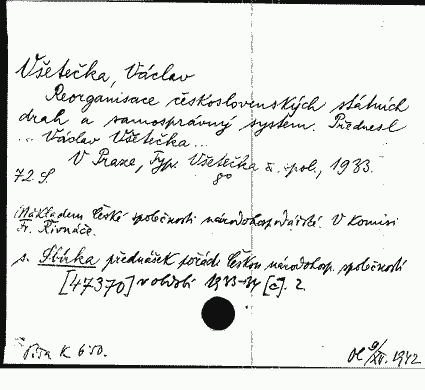 Všetečka, Václav
Reorganisace československých státních
drah a samosprávný systém. Přednesl
... Václav Všetečka...
V Praze, Typ. Všetečka a spol., 1933.
8°
72 S.
Nákladem České společnosti národohospodářské. V komisi
Fr. Řivnáče.
s. Sbírka přednášek pořád. Českou národohosp. společností
[47370] v období 1933-34 [č]. 2
K 650.
1942